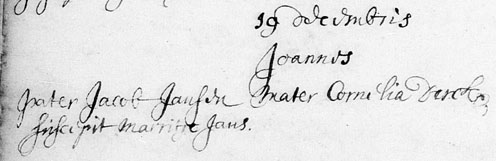 19 decembris
Joannes
pater Jacob Jansen Mater Cornelia Dircks
suscipit Marritje Jans.